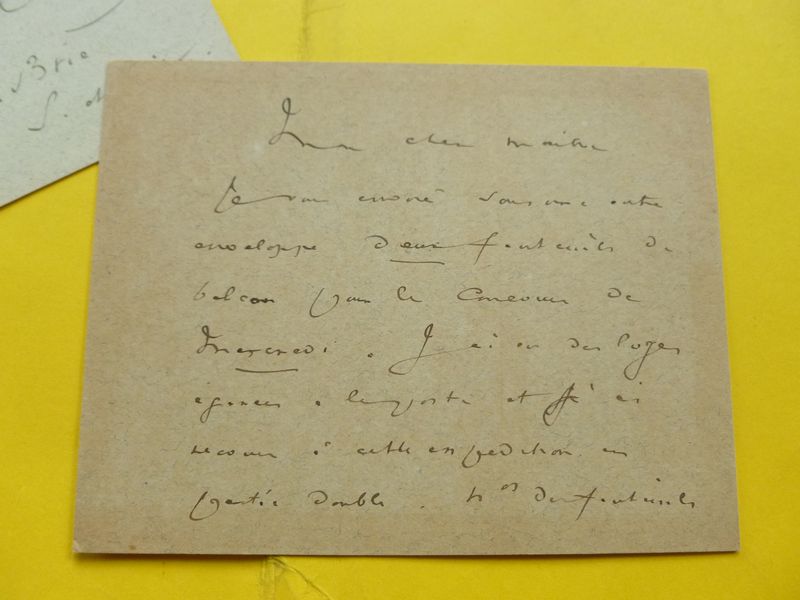 Brie
S.
Mon cher maître
Je vous envoie sous une autre
enveloppe deux fauteuils de
balcon pour le Concours de
Mercredi. J'ai eu des loges
égarées à la poste et j'ai
recours à cette expédition en
partie double. Nos des fauteuils